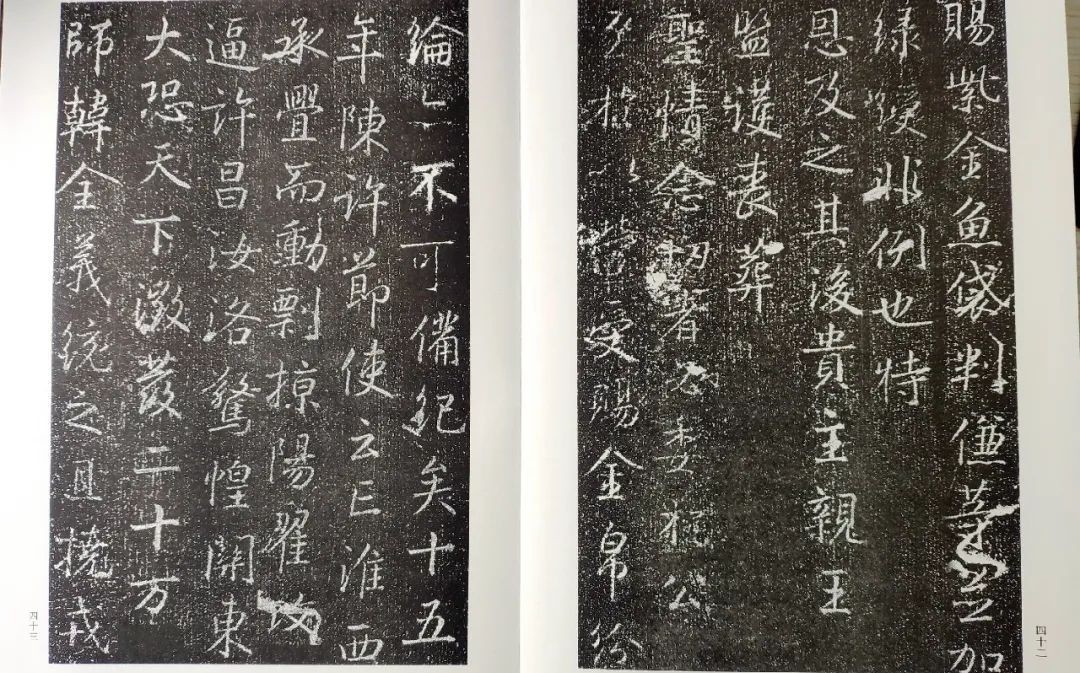 賜紫金魚袋判傔等並加
緑綬非例也特
恩及之其後貴主親王
監護喪葬
聖情念切者必委於公
受賜金帛紛
綸〻不可備紀矣十五
年陳許節使云亡淮西
承釁而動剽掠陽翟攻
逼許昌汝洛驚惶關東
大恐天下徵發二十万
師韓全義統之且撓戎
四十二
四十三